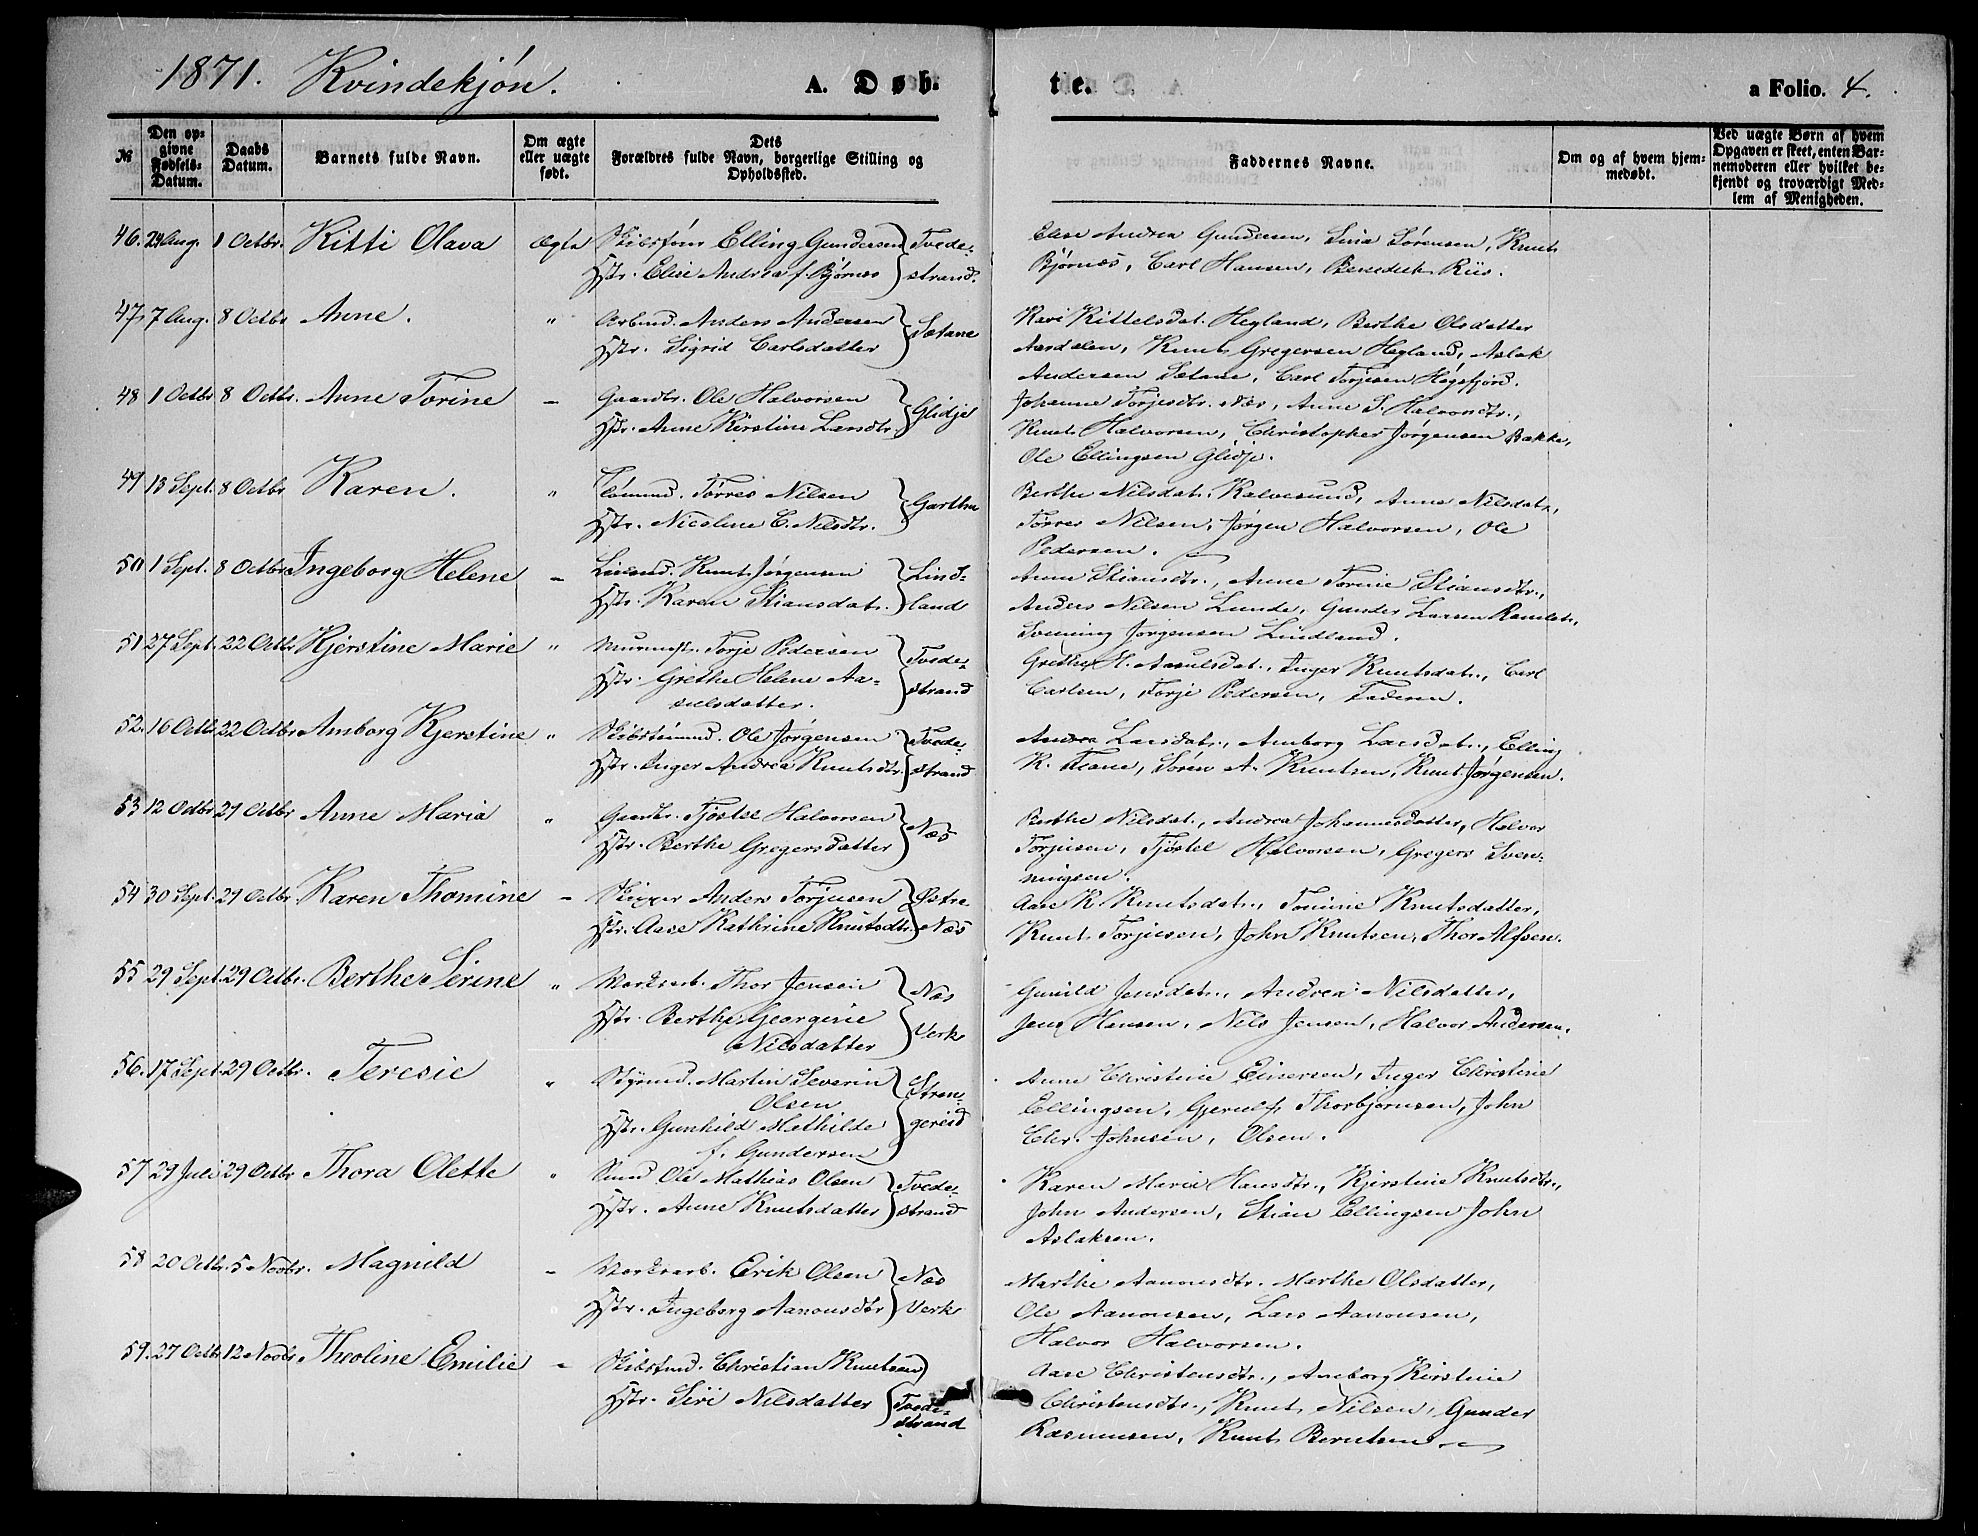 1871. Kvindekjøn.
A. Døb-
te.
a Folio. 4.
№
Den op-
givne
Fødsels-
Datum.
Daabs
Datum.
Barnets fulde Navn.
Om ægte
eller uægte
født.
Dets
Forældres fulde Navn, borgerlige Stilling og
Opholdssted.
Faddernes Navne.
Om og af hvem hjem-
medøbt.
Ved uægte Børn af hvem
Opgaven er skeet, enten Bar-
nemoderen eller hvilket be-
kjendt og troværdigt Med-
lem af Menigheden.
46. 24 Aug. 1 Octbr. Kitti Olava Ægte Skibsføm Elling Gundersen Tvede-
Hstr. Elise Andrea f. Bjørnæs strand.
Elise Andrea Gundersen, Sina Sørensen, Knut
Bjørnæs, Carl Hansen, Benedict Riis.
47. 7 Aug. 8 Octbr Anne. " Arbmd. Anders Andersen
Hstr. Sigrid Carlsdatter Sætane
Kari Kittelsdat. Hegland, Berthe Olsdatter
Aasdalen, Knut Gregersen Hegland, Aslak
Andersen Sætane, Carl Torjesen Høgsfjord.
48 1 Octbr 8 Octbr. Anne Torine – Gaardbr. Ole Halvorsen
Hstr. Anne Kirstine Larsdtr. Glidje
Johanne Torjesdtr. Næs, Anne S. Halvorsdtr.,
Knut Halvorsen, Christopher Jørgensen Bakke,
Ole Ellingsen Glidje.
49 13 Sept. 8 Octbr Karen. " Tømmd. Tørres Nilsen
Hstr. Nicoline C. Nilsdtr. Garthn
Berthe Nilsdat. Kalvesund, Anne Nilsdat.,
Tørres Nilsen, Jørgen Halvorsen, Ole
Pedersen.
50 1 Sept. 8 Octbr Ingeborg Helene – Leilmd. Knut Jørgensen Lind-
Hstr. Karen Stiansdat. land
Anne Stiansdtr., Anne Torine Stiansdtr.,
Anders Nilsen Lunde, Gunder Larsen
Svenning Jørgensen Lindland.
51 27 Sept. 22 Octbr Kjerstine Marie " Murmest. Torje Pedersen Tvede-
Hstr. Grethe Helene Aa- strand
sulsdatter.
Grethe H. Aasulsdat., Inger Knutsdat., Carl
Carlsen, Torje Pedersen, Faderen.
52. 16 Octbr 22 Octbr Amborg Kjerstine " Skibstømmd. Ole Jørgensen Tvede-
Hstr. Inger Andrea Knutsdtr. strand
Andrea Larsdat., Amborg Larsdat., Elling
K. Tiane, Søren A. Knutsen, Knut Jørgensen.
53 12 Octbr 29 Octbr Anne Maria " Gaardbr. Tjøstel Halvorsen
Hstr. Berthe Gregersdatter Næs
Berthe Nilsdat., Andrea Johannesdatter, Halvor
Torjusen, Tjøstel Halvorsen, Gregers Sven-
ningsen.
54 30 Sept. 29 Octbr. Karen Thomine – Skipper Anders Torjusen Østre
Hstr. Aase Kathrine Knutsdtr. Næs
Aase K. Knutsdat., Tomine Knutsdatter,
Knut Torjusen, John Knutsen, Thor Alfsen.
55 29 Sept. 29 Octbr. Berthe Serine " Værksarb. Thor Jensen Næs
Hstr. Berthe Georgine Verk
Nilsdatter
Gunild Jensdat., Andrea Nilsdatter,
Jens Hansen, Nils Jensen, Halvor Andersen.
56. 17 Sept. 29 Octbr. Teresie " Styrmd. Martin Severin Stran-
Olsen
Hstr. Gunhild Mathilde gereid
f. Gundersen
Anne Christine Einersen, Inger Christine
Ellingsen, Gjerulf Thorbjørnsen, John
Chr. Johnsen, Olsen.
57 29 Juli 29 Octbr Thora Olette " Smed Ole Mathias Olsen Tvede-
Hstr. Anne Knutsdatter strand
Karen Maria Hansdtr., Kjerstine Knutsdtr.,
John Andersen, Stian Ellingsen John
Aslaksen.
58 20 Octbr. 5 Novbr. Magnild – Værksarb. Erik Olsen Næs
Hstr. Ingeborg Aanonsdtr Verk
Marthe Aanonsdtr. Marthe Olsdatter,
Ole Aanonsen, Lars Aanonsen,
Halvor Halvorsen.
59. 27 Octbr 12 Novbr Theoline Emilie – Christian Knutsen
Hstr. Siri Nilsdatter Tvede-
strand
Aase Christensdtr., Amborg Kirstine
Christensdtr., Knut Nilsen, Gunder
Rasmussen, Knut Berntsen